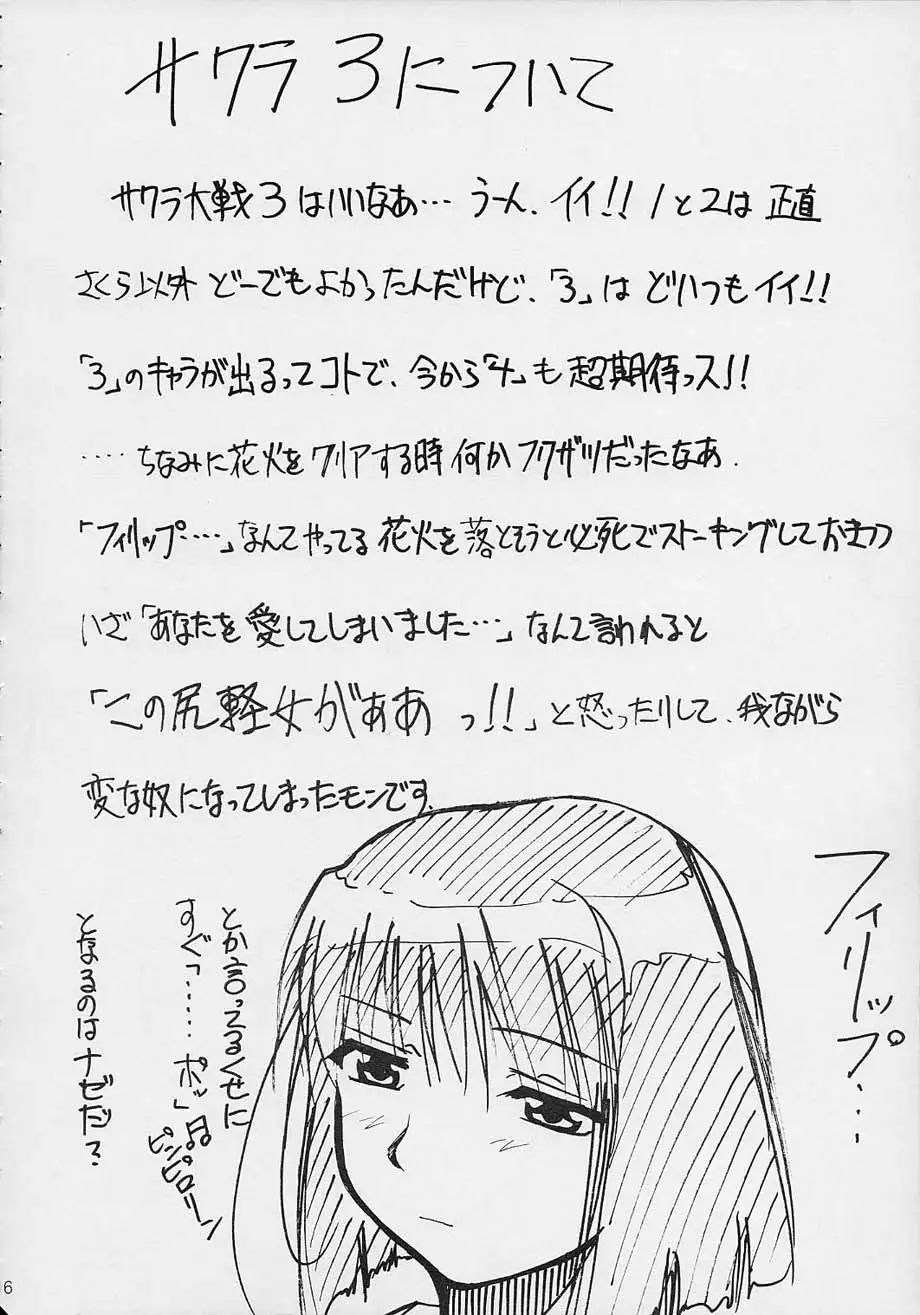 サクラ3について
サクラ大戦3はいいなあ… うーん、イイ!! 1と2は 正直
さくら以外 どーでもよかったんだけど、「3」は どいつもイイ!!
「3」のキャラが出るってコトで、今から「4」も 超期待っス!!
‥‥ ちなみに花火を クリアする時 何かフクザツだったなあ.
「フィリップ‥‥」なんてやってる 花火を 落とそうと必死でストーキングしておきつつ
いざ「あなたを 愛してしまいました…」なんて言われると
「この尻軽女がぁああ っ!!」と怒ったりして、我ながら
変な奴になってしまったモンです.
フィリップ‥‥
とか言ってるくせに
すぐ「‥‥‥ポッ」♫
ピンピロリーン
となるのはナゼだ?
6